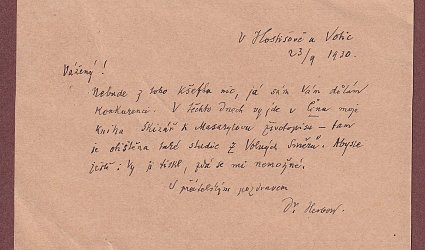 V Hostišově u Votic
23/9 1930.
Vážený!
Nebude z toho kšeftu nic, já sám Vám dělám
konkurenci. V těchto dnech vyjde v Činu moje
kniha Skizář k Masarykovu životopisu – tam
je otištěna také studie z Volných Směrů. Abyste
ještě i Vy ji tiskl, zdá se mi nemožné.
S přátelským pozdravem
Dr. Herben.